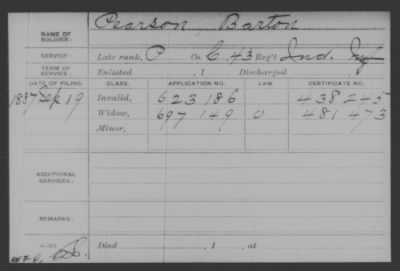 Pearson, Barton
NAME OF SOLDIER:
SERVICE: Late rank, P Co. C. 43 Reg't Ind. Inf
TERM OF SERVICE: Enlisted , 1 Discharged , 1
DATE OF FILING. CLASS. APPLICATION NO. LAW CERTIFICATE NO.
1887 Sep 19 Invalid, 623 186 438 245
Widow, 697 149 O 481 473
Minor,
ADDITIONAL SERVICES:
REMARKS:
Died , 1 , at